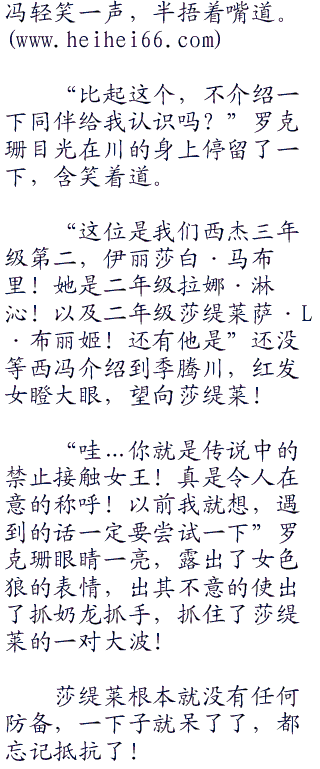 冯轻笑一声，半捂着嘴道。
(www.heihei66.com)
“比起这个，不介绍一
下同伴给我认识吗？”罗克
珊目光在川的身上停留了一
下，含笑着道。
“这位是我们西杰三年
级第二，伊丽莎白·马布
里！她是二年级拉娜·淋
沁！以及二年级莎缇莱萨·L
·布丽姬！还有他是”还没
等西冯介绍到季腾川，红发
女瞪大眼，望向莎缇莱！
“哇…你就是传说中的
禁止接触女王！真是令人在
意的称呼！以前我就想，遇
到的话一定要尝试一下”罗
克珊眼睛一亮，露出了女色
狼的表情，出其不意的使出
了抓奶龙抓手，抓住了莎缇
莱的一对大波！
莎缇莱根本就没有任何
防备，一下子就呆了了，都
忘记抵抗了！